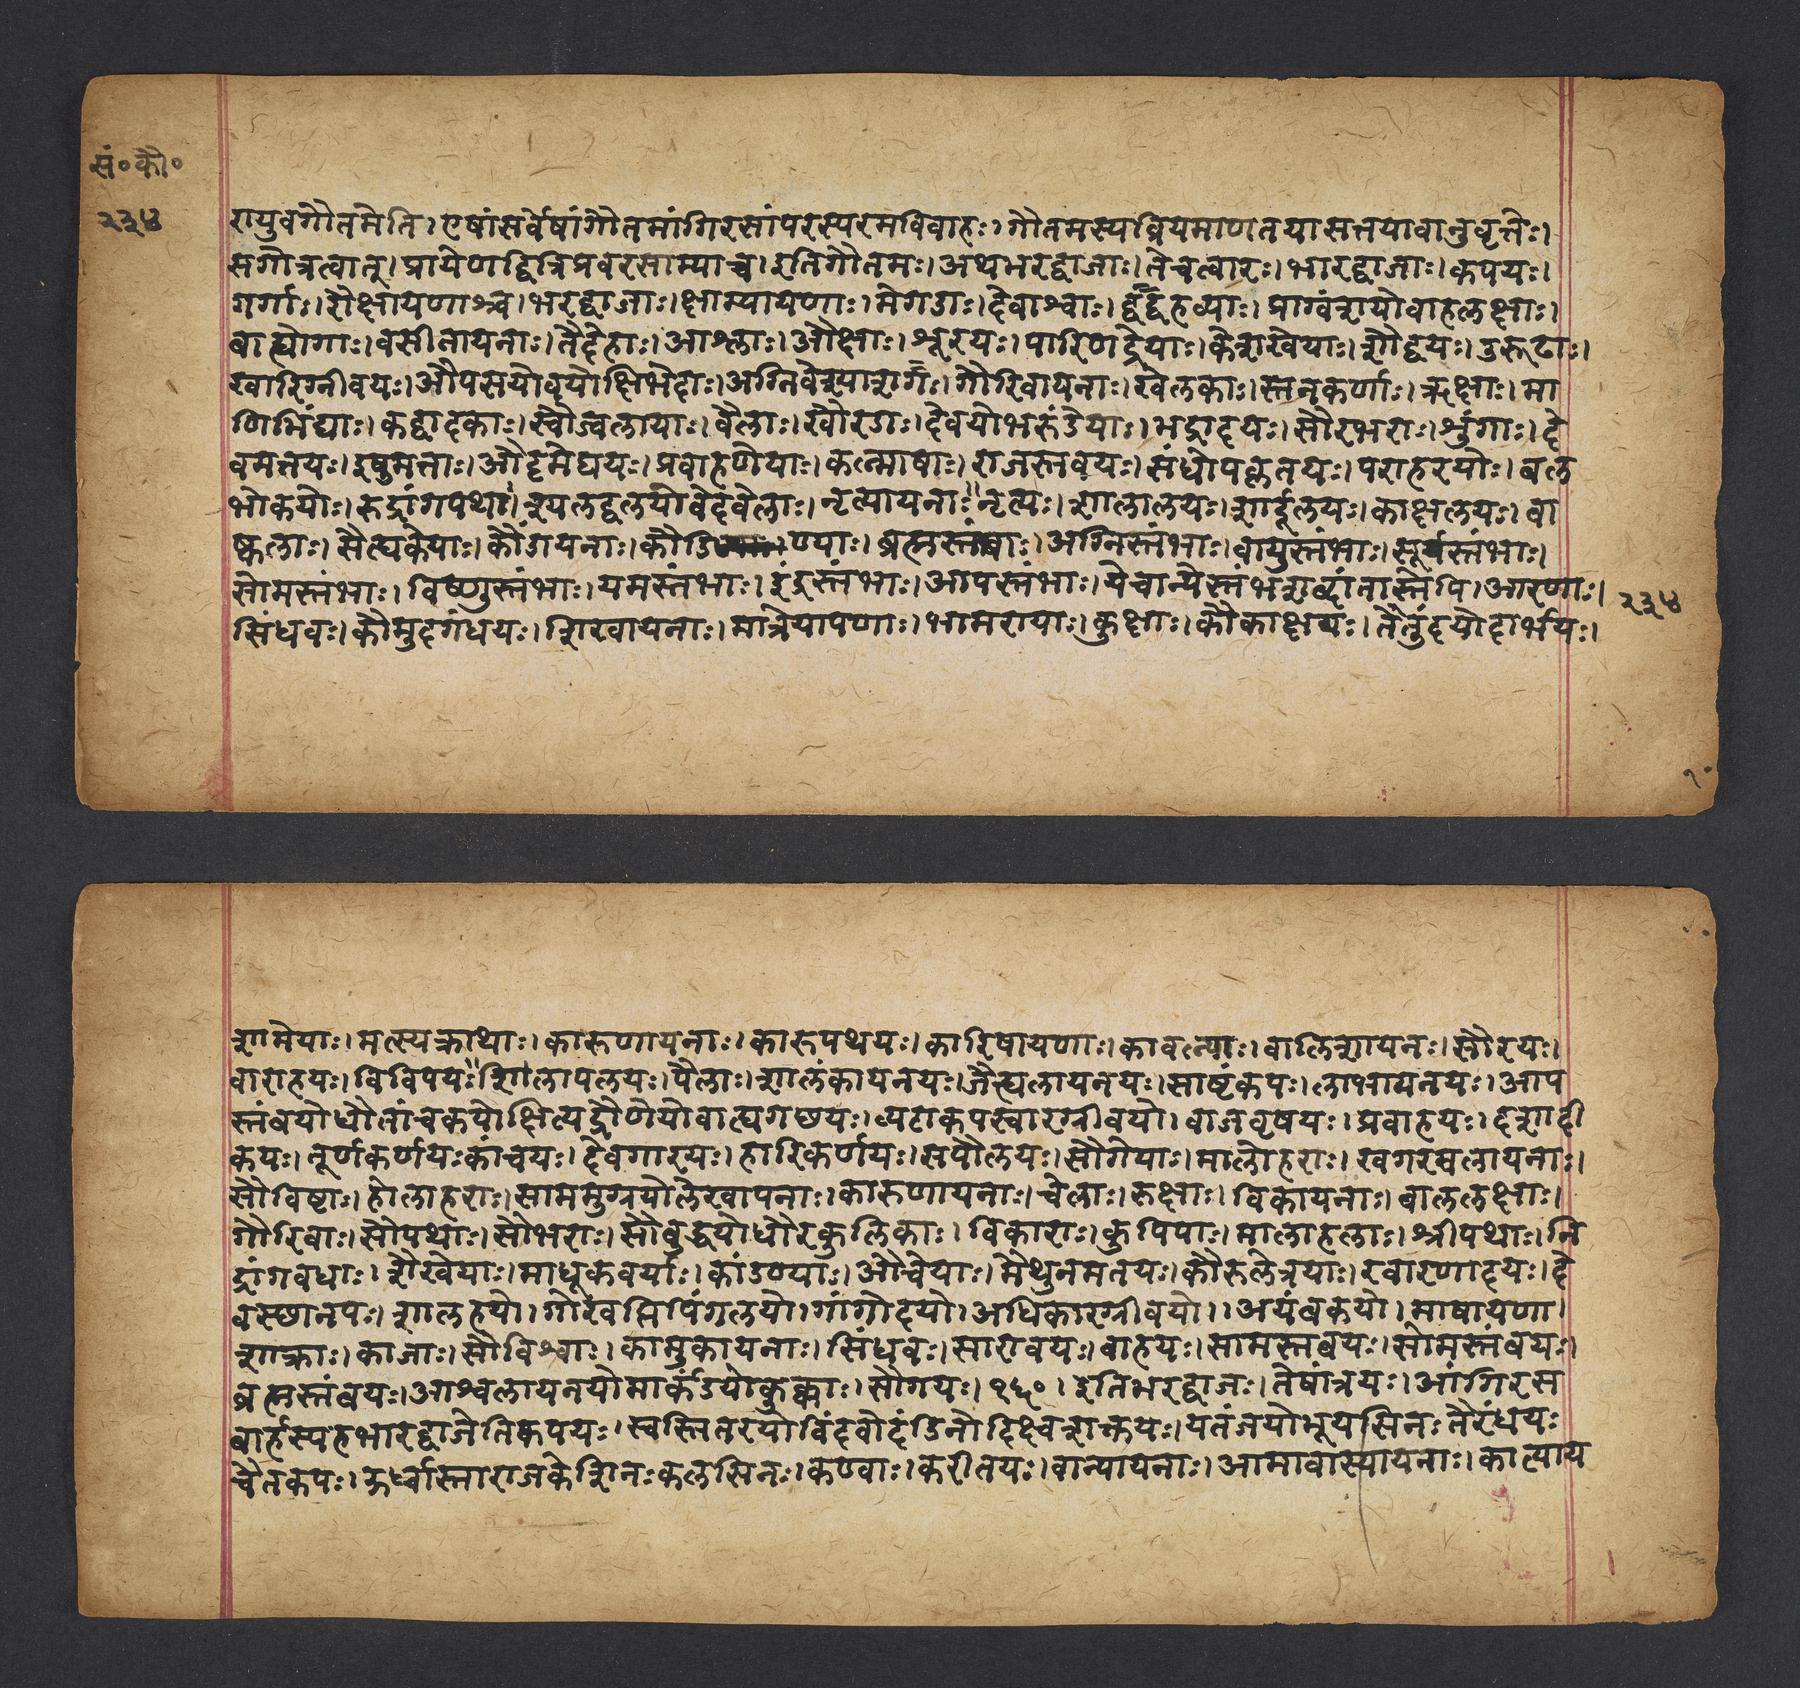 सं॰कौ॰
२३४
रायुवगौतमेति। एषांसर्वेषांगौतमांगिरसांपरस्परमविवाहः। गौतमस्यव्रियमाणतयासत्तयावानुवृत्तेः।
सगोत्रत्वात्। प्रायेणद्वित्रिप्रवरसाम्याच्च। इतिगौतमः। अथभरद्वाजाः। तेचत्वारः। भारद्वाजाः। कपयः।
गर्गाः। रौक्षायणाश्च। भरद्वाजाः। क्षाम्यायेणाः। मेगडाः। देवाश्वाः। प्राग्वंशयोवाहलक्षाः।
वाह्योगाः। वसीनायनाः। तैदेहाः। आश्लाः। औक्षाः। भूरयः। पारिणद्देयाः। केशरवेयाः। शौद्वयः। उरूढाः।
खारिग्नीवयः। औपसयोवयोक्षिभेदाः। अग्निवेश्याशर्गः। गौरिवायनाः। खेलकाः। स्तनकर्णाः। ऋक्षाः। मा
णिभिंद्याः। कद्वादकाः। स्वौज्वलायाः। वैलाः। खोरडाः। देवयोभरुंडेयाः। भद्रादयः। सौरभराः। शुंगाः। दे
वमतयः। इषुमताः। औदमेघयः। प्रवाहणेयाः। कल्मोषाः। राजस्तवयः। संधोपक्लतयः। पराहरयोः। बल
भीकयोः। रुद्रांगपथाः। श्यलद्वलयोवेदवेलाः। नृत्यायनाः। नृत्यः। शालालयः। शार्दूलयः। काक्षलयः। वा
ष्कलाः। सैत्यकेयाः। कौंडायनाः। कौडि ण्याः। ब्रह्मस्तंबाः। अग्निस्तंभाः। वायुस्तंभाः। सूर्यस्तंभाः।
सोमस्तंभाः। विष्णुस्तंभाः। यमस्तंभाः। इंद्रस्तंभाः। आपस्तंभाः। येचान्येस्तंभशब्दांतास्तेपि। आरणाः।
२३४
सिंधवः। कौमुदगंधयः। शिखायनाः। मात्रेयापणाः। भामरायाः। कुक्षाः। कौकाक्षयः। तेतुंदयोदार्भयः।
शामेयाः। मत्स्यक्राथाः। कारुणायनाः। कारुपथयः। कारिषायणाः। कावल्याः। वालिशायनः। सौरयः।
वाराहयः। विविपयः। शिलापलयः। पैलाः। शालंकायनयः। जैत्यलायनयः। साष्टंकपः। लाभायनयः। आप
स्तंबयोधौतांचकयोक्षित्यद्रौणेयोवात्यगछयः। व्यटाकपस्वारग्नीवयो। वाजवृषयः। प्रवाहयः। दशादी
कयः। तूर्णकर्णयःकांचयः। देवगारयः। हारिकर्णयः। सपौलयः। सौगेयाः। मालोहराः। खगरमलायनाः।
सौविष्टाः। होलाहराः। साममुग्नयोलैखापनाः। कारुणायनाः। चेलाः। रुक्षाः। विकायनाः। बाललक्षाः।
गौरिवाः। सौपथाः। सौभराः। सौबुद्धयोधौरकुलिकाः। विकाराः। कुपिपाः। मालाहलाः। श्रीपथाः। नि
द्रांगवधाः। शैखेयाः। माधूकवर्याः। कांडण्याः। औचेयाः। मैथुनमतयः। कौरुलेत्रयाः। खारणादयः। दे
वस्छानपः। शालहयो। गोरवम्निपिंगलयो। गांगोदयो। अधिकारग्नीवयो।। अयंबकयो। माषायणा।
शाक्राः। काजाः। सौविश्वाः। कामुकायनाः। सिंधवः। सारावयः। वाहयः। सामस्तबयः। सोमस्तंबयः।
ब्रह्मस्तंबयः। आश्वलायनयोमार्कंडयोकुक्काः। सौगयः। १५०। इतिभरद्वाजः। तेषांत्रयः। आंगिरस
बार्हस्पत्यभारद्वाजेतिकपयः। स्वस्तितरयोविंदवोदंडिनोदिक्ष्वशक्तयः। पतंजयोभूयसिनः तैरंधयः
चैतकपः। ऊर्ध्वास्ताराजकेशिनःकलसिनः। कण्वाः। करीतयः। वान्यायनाः। आमावास्यायनाः। कात्याय